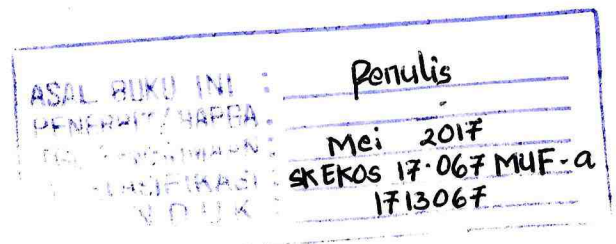 ASAL BUKU INI : Penulis
PENERBIT/HARGA : -
Mei 2017
KLASIFIKASI : SKEKOS 17.067 MUF-a
INDUK : 1713067